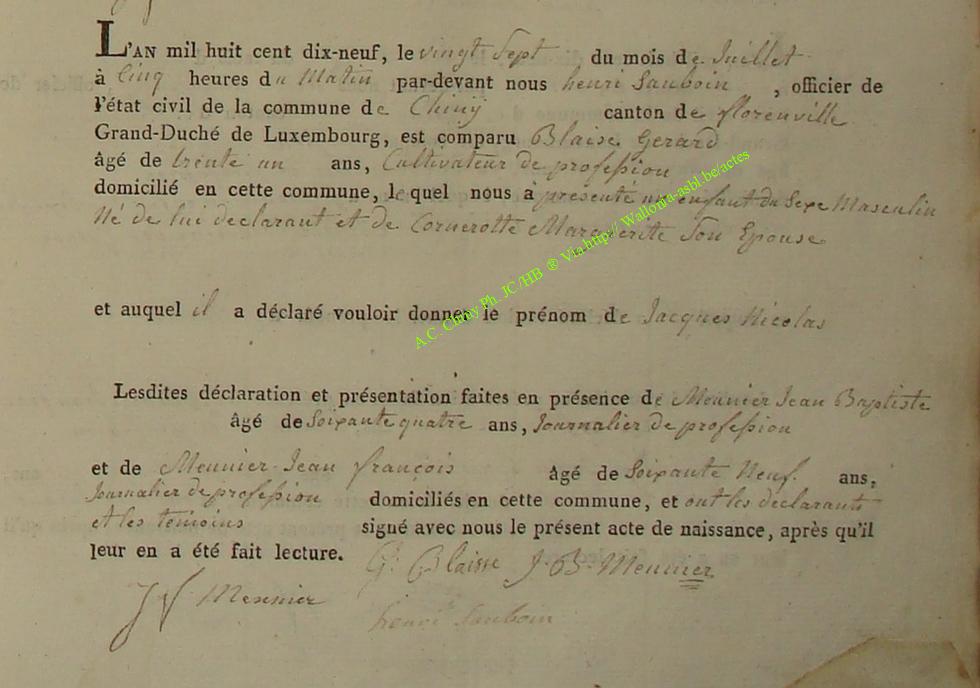 L'AN mil huit cent dix-neuf, le vingt Sept du mois de Juillet
à Cinq heures du Matin par-devant nous henri Sauboin , officier de
l'état civil de la commune de Chiny canton de florenville
Grand-Duché de Luxembourg, est comparu Blaise Gerard
âgé de trente un ans, Cultivateur de profession
domicilié en cette commune, lequel nous a présenté un enfant du Sexe Masculin
Né de lui declarant et de Cornerotte Marguerite Son Epouse
et auquel il a déclaré vouloir donner le prénom de Jacques Nicolas
Lesdites déclaration et présentation faites en présence de Meunier Jean Baptiste
âgé de Soixante quatre ans, Journalier de profession
et de Meunier Jean françois âgé de Soixante Neuf ans,
Journalier de profession domiciliés en cette commune, et ont les declarants
et les temoins signé avec nous le présent acte de naissance, après qu'il
leur en a été fait lecture. G: Blaisse J. B. Meunier
JF Meunier
henri Sauboin
A.C. Chiny Ph. JC /HB ® Via.http// Wallonia-asbl.be/actes